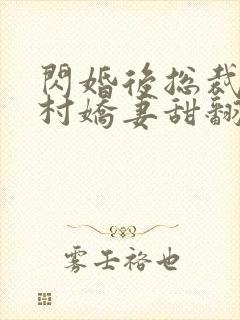 閃婚後總裁
村嬌妻甜翻
雾壬裕也